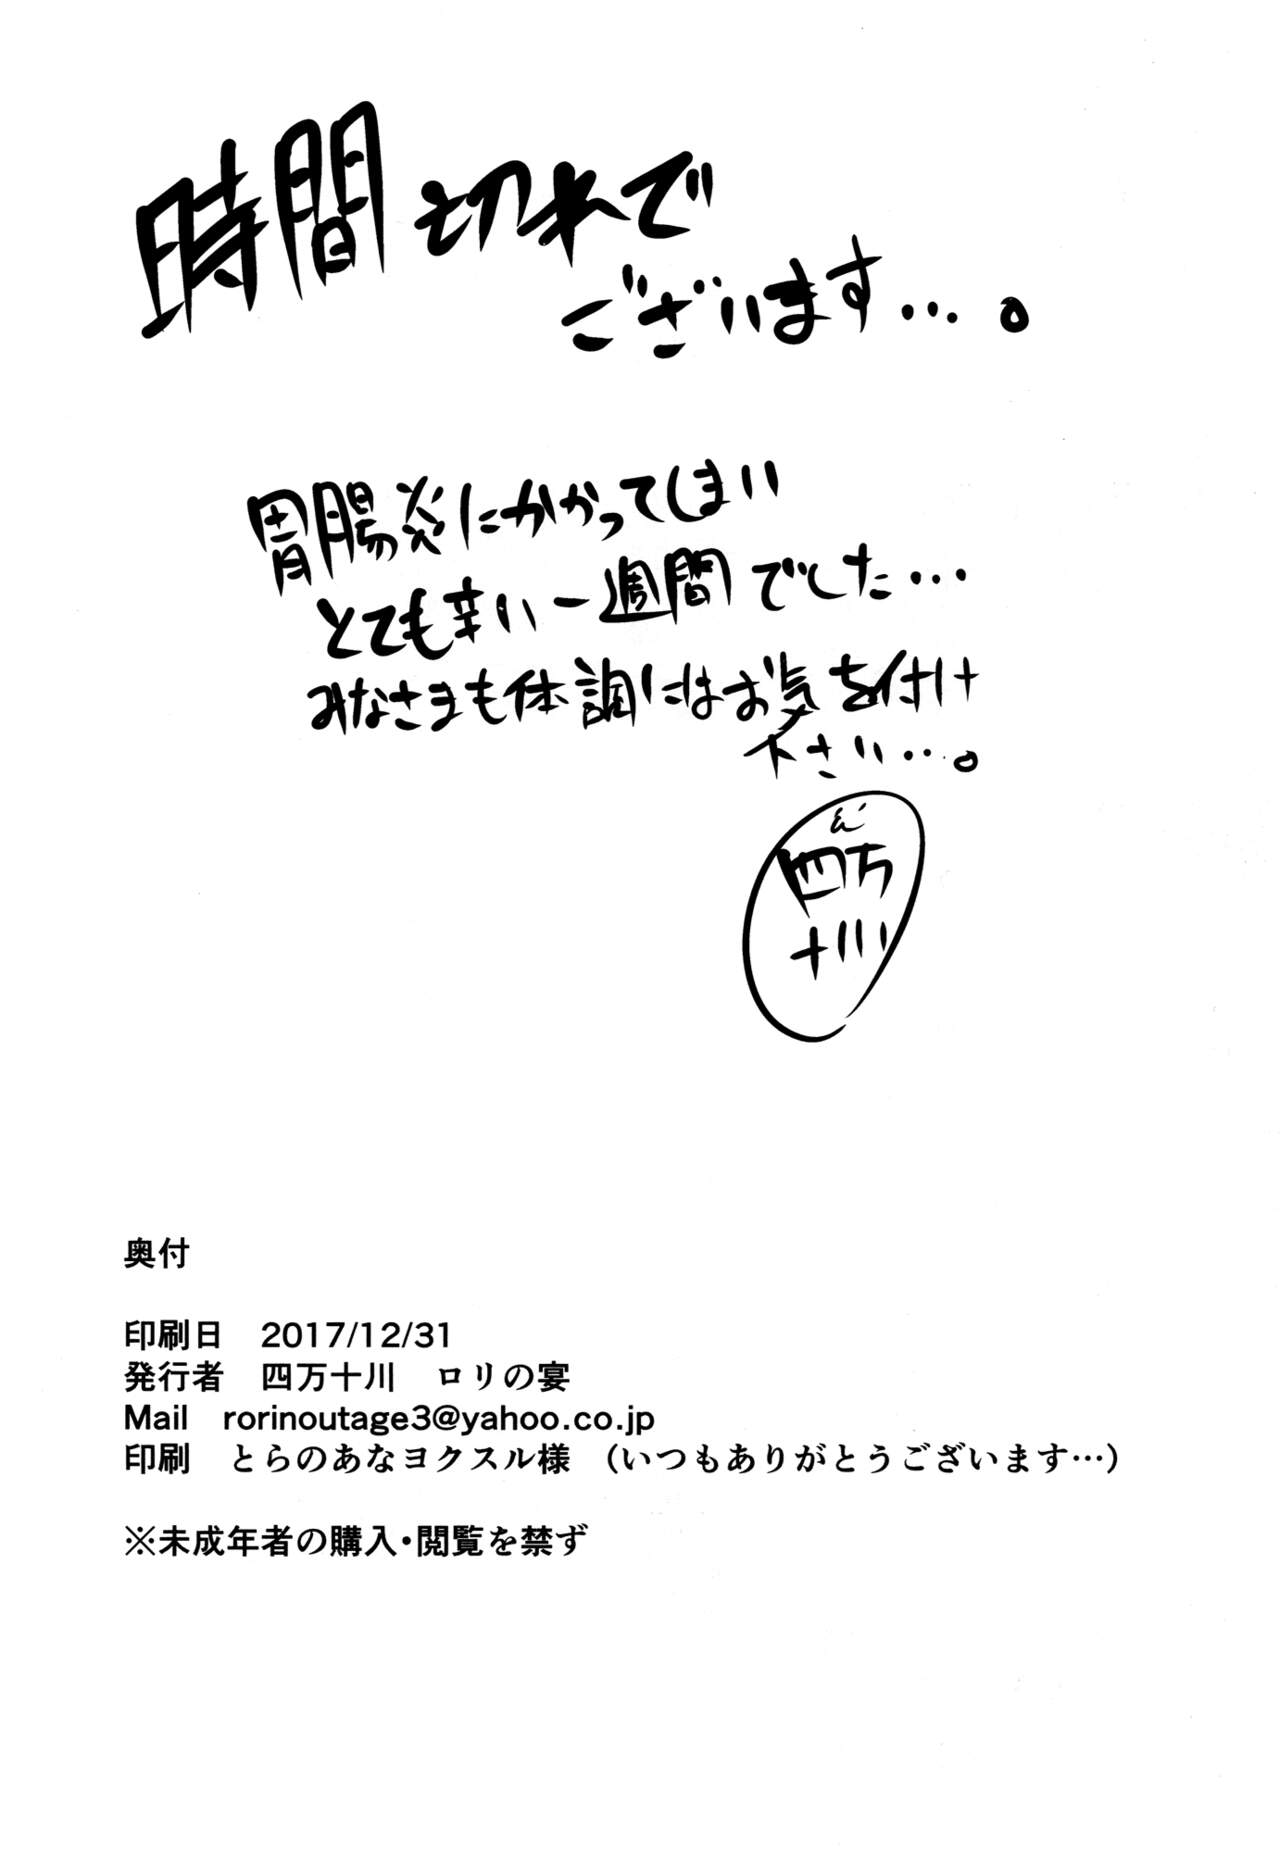 時間切れで
ございます…。
胃腸炎にかかってしまい
とても辛い一週間でした…
みなさまも体調にはお気を付け
下さい…。
四万
十川
奥付
印刷日　2017/12/31
発行者　四万十川　ロリの宴
Mail　rorinoutage3@yahoo.co.jp
印刷　とらのあなヨクスル様　（いつもありがとうございます…）
※未成年者の購入・閲覧を禁ず